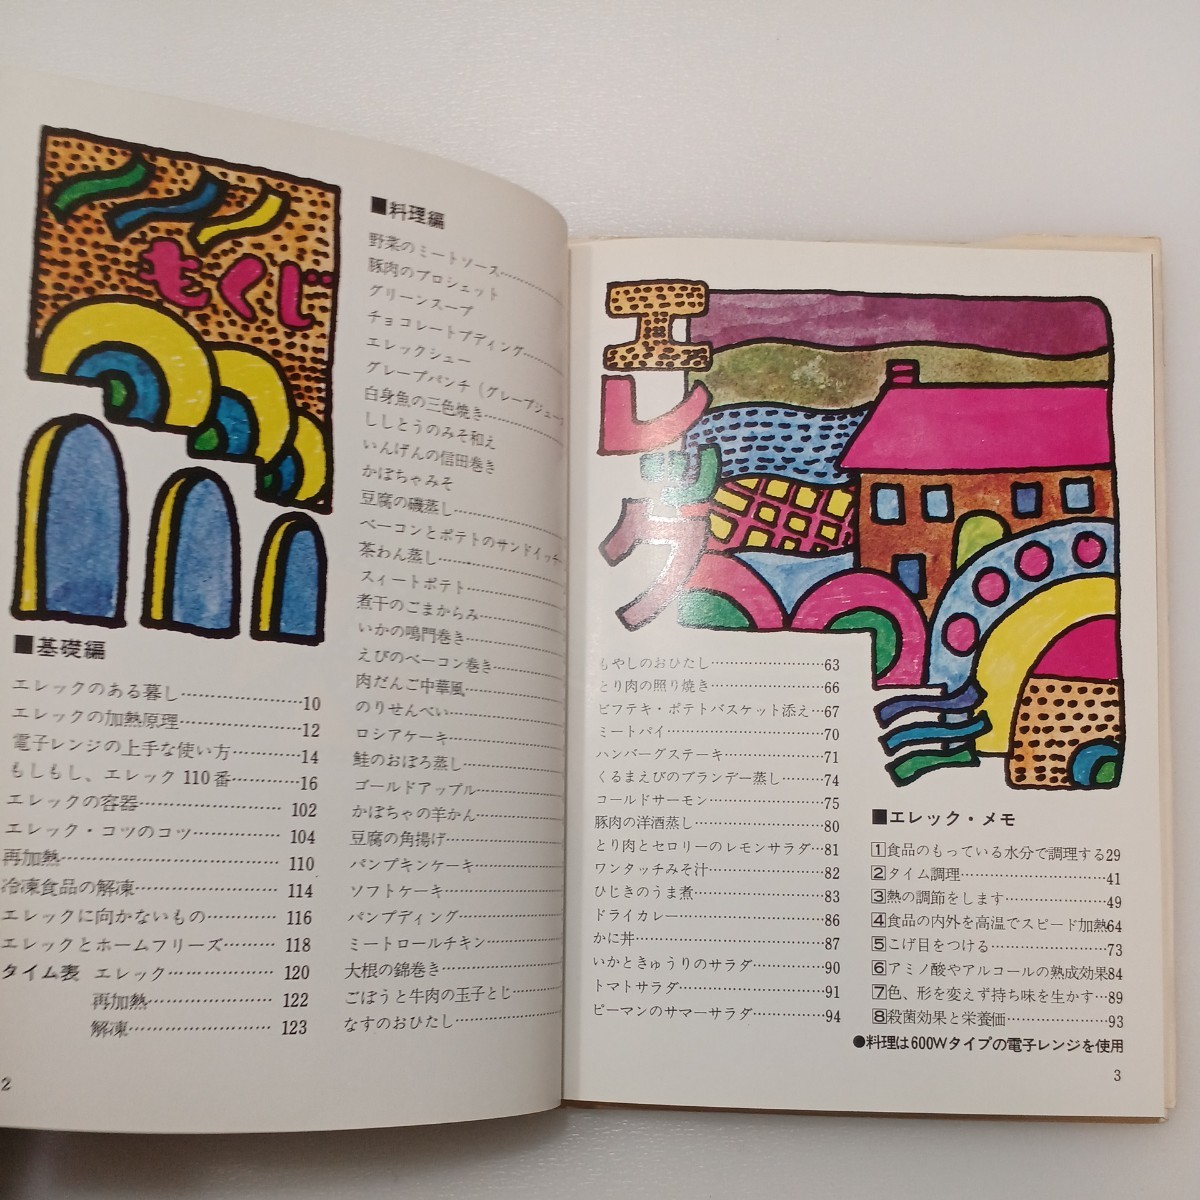 もくじ
■基礎編
エレックのある暮し…………10
エレックの加熱原理…………12
電子レンジの上手な使い方……14
もしもし、エレック110番……16
エレックの容器…………102
エレック・コツのコツ…………104
再加熱…………110
冷凍食品の解凍…………114
エレックに向かないもの………116
エレックとホームフリーズ………118
タイム表 エレック…………120
再加熱…………122
解凍…………123
2
■料理編
野菜のミートソース…………
豚肉のブロシェット
グリーンスープ
チョコレートプディング……
エレックシュー
グレープパンチ(グレープジュース
白身魚の三色焼き…………
ししとうのみそ和え
いんげんの信田巻き
かぼちゃみそ
豆腐の磯蒸し…………
ベーコンとポテトのサンドイッチ…
茶わん蒸し…………
スィートポテト
煮干のごまからみ…………
いかの鳴門巻き
えびのベーコン巻き…………
肉だんご中華風
のりせんべい…………
ロシアケーキ
鮭のおぼろ蒸し…………
ゴールドアップル…………
かぼちゃの羊かん…………
豆腐の角揚げ…………
パンプキンケーキ
ソフトケーキ…………
パンプディング…………
ミートロールチキン…………
大根の錦巻き…………
ごぼうと牛肉の玉子とじ……
なすのおひたし…………
エレック
もやしのおひたし…………63
とり肉の照り焼き…………66
ビフテキ・ポテトバスケット添え…67
ミートパイ…………70
ハンバーグステーキ…………71
くるまえびのブランデー蒸し……74
コールドサーモン…………75
豚肉の洋酒蒸し…………80
とり肉とセロリーのレモンサラダ…81
ワンタッチみそ汁…………82
ひじきのうま煮…………83
ドライカレー…………86
かに丼…………87
いかときゅうりのサラダ………90
トマトサラダ…………91
ピーマンのサマーサラダ………94
■エレック・メモ
1食品のもっている水分で調理する29
2タイム調理…………41
3熱の調節をします…………49
4食品の内外を高温でスピード加熱64
5こげ目をつける…………73
6アミノ酸やアルコールの熟成効果84
7色、形を変えず持ち味を生かす…89
8殺菌効果と栄養価…………93
●料理は600Wタイプの電子レンジを使用
3